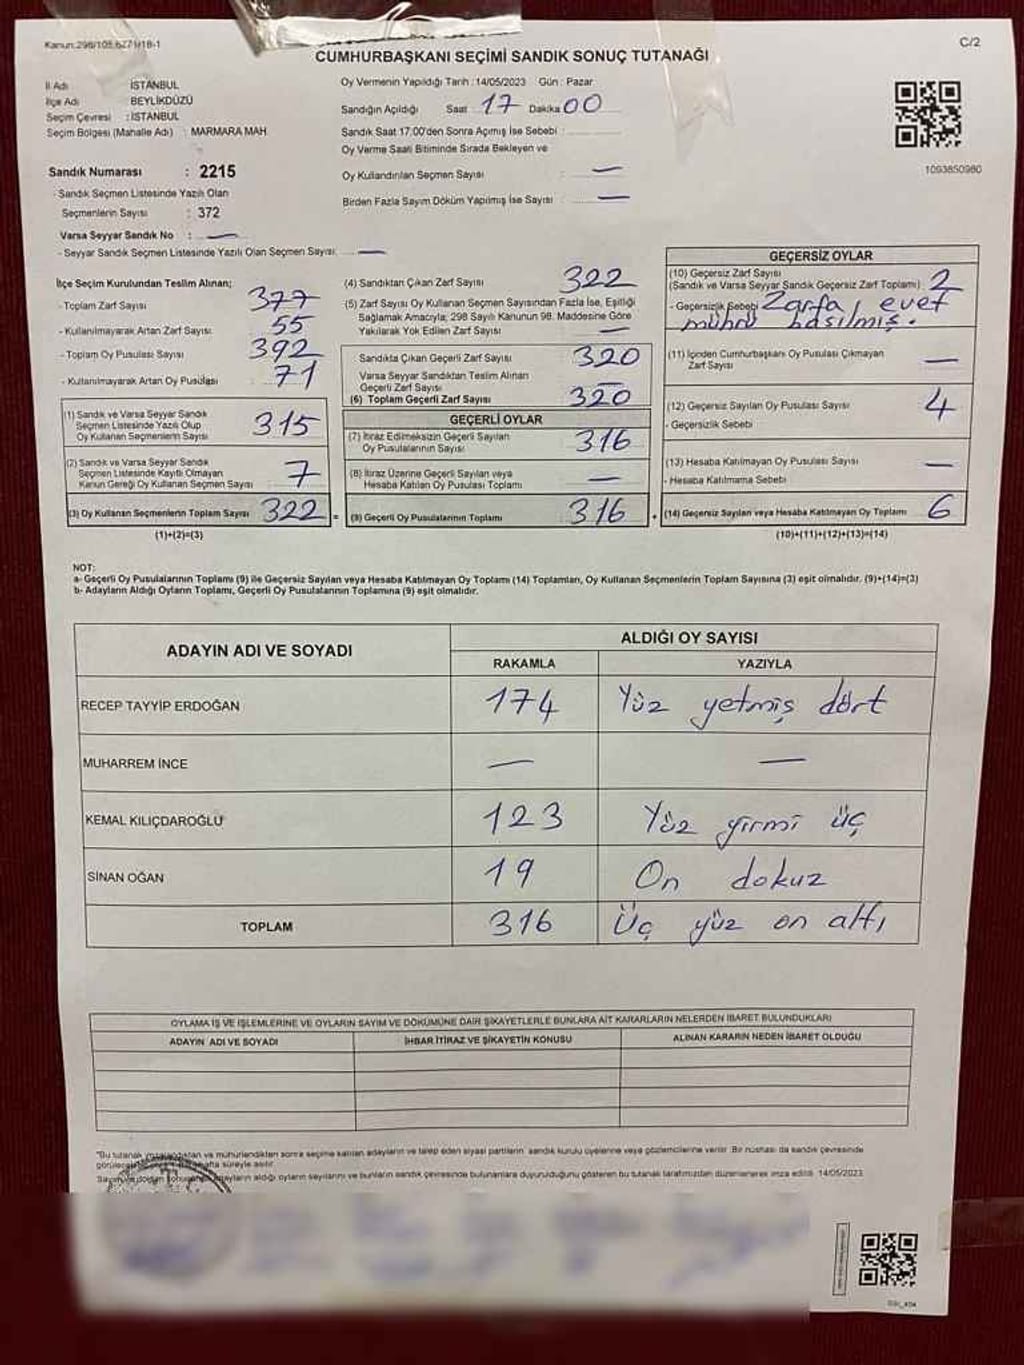 Kanun:298/105,6271/18-1
C/2
CUMHURBAŞKANI SEÇİMİ SANDIK SONUÇ TUTANAĞI
İl Adı : İSTANBUL
İlçe Adı : BEYLİKDÜZÜ
Seçim Çevresi : İSTANBUL
Seçim Bölgesi (Mahalle Adı) : MARMARA MAH
Sandık Numarası : 2215
- Sandık Seçmen Listesinde Yazılı Olan
Seçmenlerin Sayısı : 372
Varsa Seyyar Sandık No : —
- Seyyar Sandık Seçmen Listesinde Yazılı Olan Seçmen Sayısı: —
Oy Vermenin Yapıldığı Tarih : 14/05/2023 Gün : Pazar
Sandığın Açıldığı Saat 17 Dakika 00
Sandık Saat 17:00'den Sonra Açılmış İse Sebebi :
Oy Verme Saati Bitiminde Sırada Bekleyen ve
Oy Kullandırılan Seçmen Sayısı : —
Birden Fazla Sayım Döküm Yapılmış İse Sayısı : —
1093850980
İlçe Seçim Kurulundan Teslim Alınan;
- Toplam Zarf Sayısı : 377
- Kullanılmayarak Artan Zarf Sayısı : 55
- Toplam Oy Pusulası Sayısı : 392
- Kullanılmayarak Artan Oy Pusulası : 71
(1) Sandık ve Varsa Seyyar Sandık
Seçmen Listesinde Yazılı Olup
Oy Kullanan Seçmenlerin Sayısı 315
(2) Sandık ve Varsa Seyyar Sandık
Seçmen Listesinde Kayıtlı Olmayan
Kanun Gereği Oy Kullanan Seçmen Sayısı 7
(3) Oy Kullanan Seçmenlerin Toplam Sayısı 322 =
(1)+(2)=(3)
(4) Sandıktan Çıkan Zarf Sayısı 322
(5) Zarf Sayısı Oy Kullanan Seçmen Sayısından Fazla İse, Eşitliği
Sağlamak Amacıyla; 298 Sayılı Kanunun 98. Maddesine Göre
Yakılarak Yok Edilen Zarf Sayısı —
Sandıkta Çıkan Geçerli Zarf Sayısı 320
Varsa Seyyar Sandıktan Teslim Alınan
Geçerli Zarf Sayısı —
(6) Toplam Geçerli Zarf Sayısı 320
GEÇERLİ OYLAR
(7) İtiraz Edilmeksizin Geçerli Sayılan
Oy Pusulalarının Sayısı 316
(8) İtiraz Üzerine Geçerli Sayılan veya
Hesaba Katılan Oy Pusulası Toplamı —
(9) Geçerli Oy Pusulalarının Toplamı 316 +
GEÇERSİZ OYLAR
(10) Geçersiz Zarf Sayısı
(Sandık ve Varsa Seyyar Sandık Geçersiz Zarf Toplamı) 2
- Geçersizlik Sebebi Zarfa, evet
mührü basılmış.
(11) İçinden Cumhurbaşkanı Oy Pusulası Çıkmayan
Zarf Sayısı —
(12) Geçersiz Sayılan Oy Pusulası Sayısı 4
- Geçersizlik Sebebi
(13) Hesaba Katılmayan Oy Pusulası Sayısı —
- Hesaba Katılmama Sebebi
(14) Geçersiz Sayılan veya Hesaba Katılmayan Oy Toplamı 6
(10)+(11)+(12)+(13)=(14)
NOT:
a- Geçerli Oy Pusulalarının Toplamı (9) ile Geçersiz Sayılan veya Hesaba Katılmayan Oy Toplamı (14) Toplamları, Oy Kullanan Seçmenlerin Toplam Sayısına (3) eşit olmalıdır. (9)+(14)=(3)
b- Adayların Aldığı Oyların Toplamı, Geçerli Oy Pusulalarının Toplamına (9) eşit olmalıdır.
ADAYIN ADI VE SOYADI
ALDIĞI OY SAYISI
RAKAMLA YAZIYLA
RECEP TAYYİP ERDOĞAN 174 Yüz yetmiş dört
MUHARREM İNCE — —
KEMAL KILIÇDAROĞLU 123 Yüz yirmi üç
SİNAN OĞAN 19 On dokuz
TOPLAM 316 Üç yüz on altı
OYLAMA İŞ VE İŞLEMLERİNE VE OYLARIN SAYIM VE DÖKÜMÜNE DAİR ŞİKAYETLERLE BUNLARA AİT KARARLARIN NELERDEN İBARET BULUNDUKLARI
ADAYIN ADI VE SOYADI İHBAR İTİRAZ VE ŞİKAYETİN KONUSU ALINAN KARARIN NEDEN İBARET OLDUĞU
"Bu tutanak ve mühürlendikten sonra seçime katılan adayların ve talep eden siyasi partilerin sandık kurulu üyelerine veya gözlemcilerine verilir. Bir nüshası da sandık çevresinde
hafta süreyle asılır.
adayların aldığı oyların sayılarını ve bunların sandık çevresinde bulunanlara duyurulduğunu gösteren bu tutanak tarafımızdan düzenlenerek imza edildi. 14/05/2023